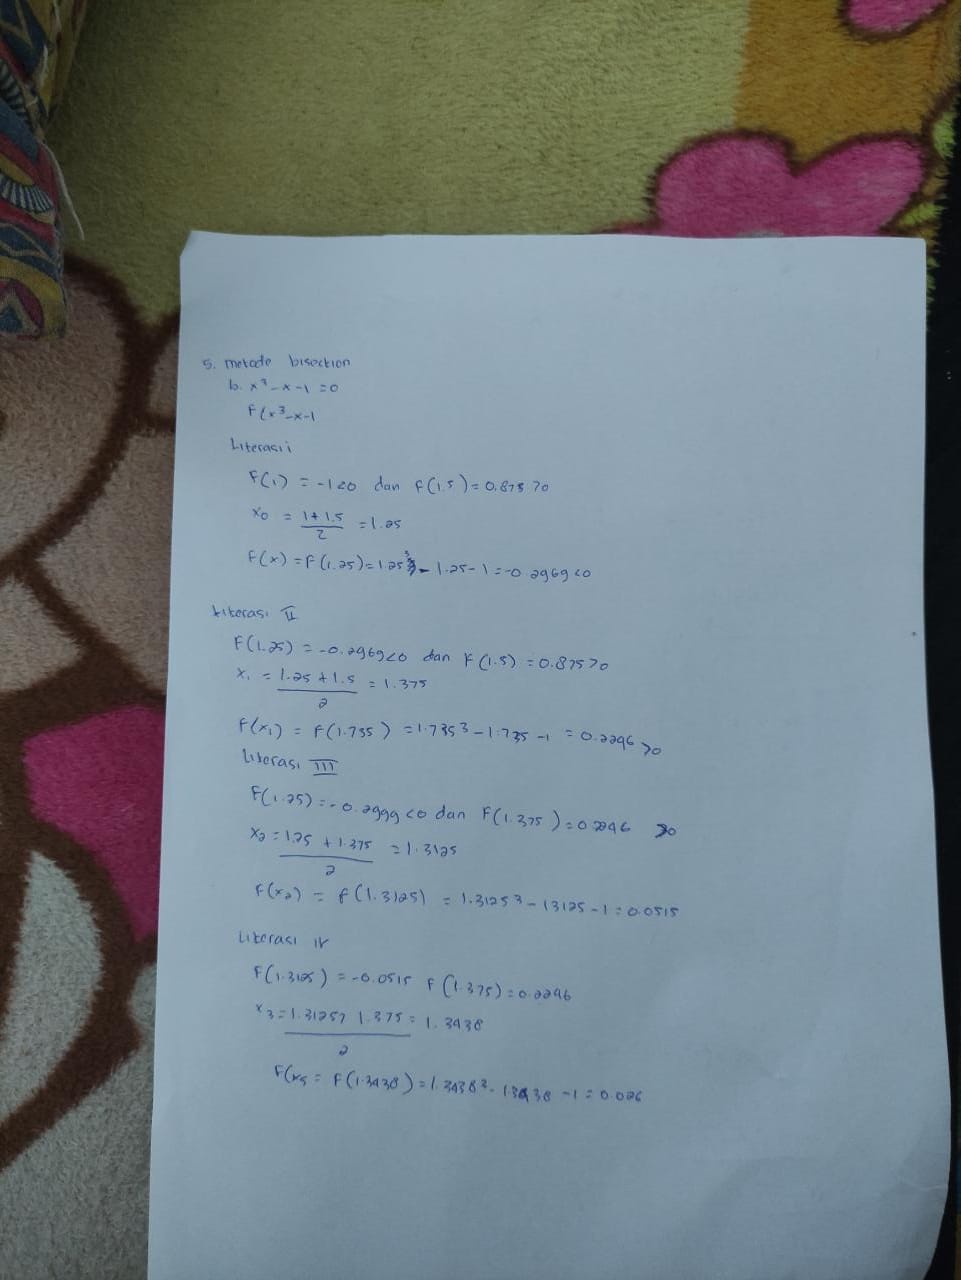 5. metode bisection
b. x³-x-1 =0
f(x³-x-1
Literasi i
f(1) = -1<0 dan f(1.5) = 0.875 >0
x₀ = 1+1.5 / 2 = 1.25
f(x) = f(1.25) = 1.25³ - 1.25-1 = -0.2969 <0
Literasi II
F(1.25) = -0.2969<0 dan F(1.5) = 0.875>0
x₁ = 1.25 + 1.5 / 2 = 1.375
f(x₁) = f(1.735) = 1.735³ - 1.735 -1 = 0.2246 >0
Literasi III
F(1.25) = -0.2999 <0 dan F(1.375) = 0.2246 >0
x₂ = 1.25 + 1.375 / 2 = 1.3125
f(x₂) = f(1.3125) = 1.3125³ - 13125 -1 = 0.0515
Literasi IV
F(1.3125) = -0.0515 f(1.375) = 0.2246
x₃ = 1.3125 1.375 / 2 = 1.3438
F(x₅ = F(1.3438) = 1.3438³ - 13438 -1 = 0.026